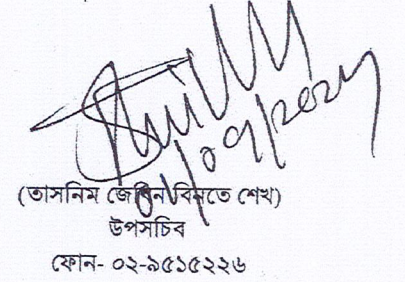 (তাসনিম জেবিন বিনতে শেখ)
উপসচিব
ফোন- ০২-৯৫১৫২২৬